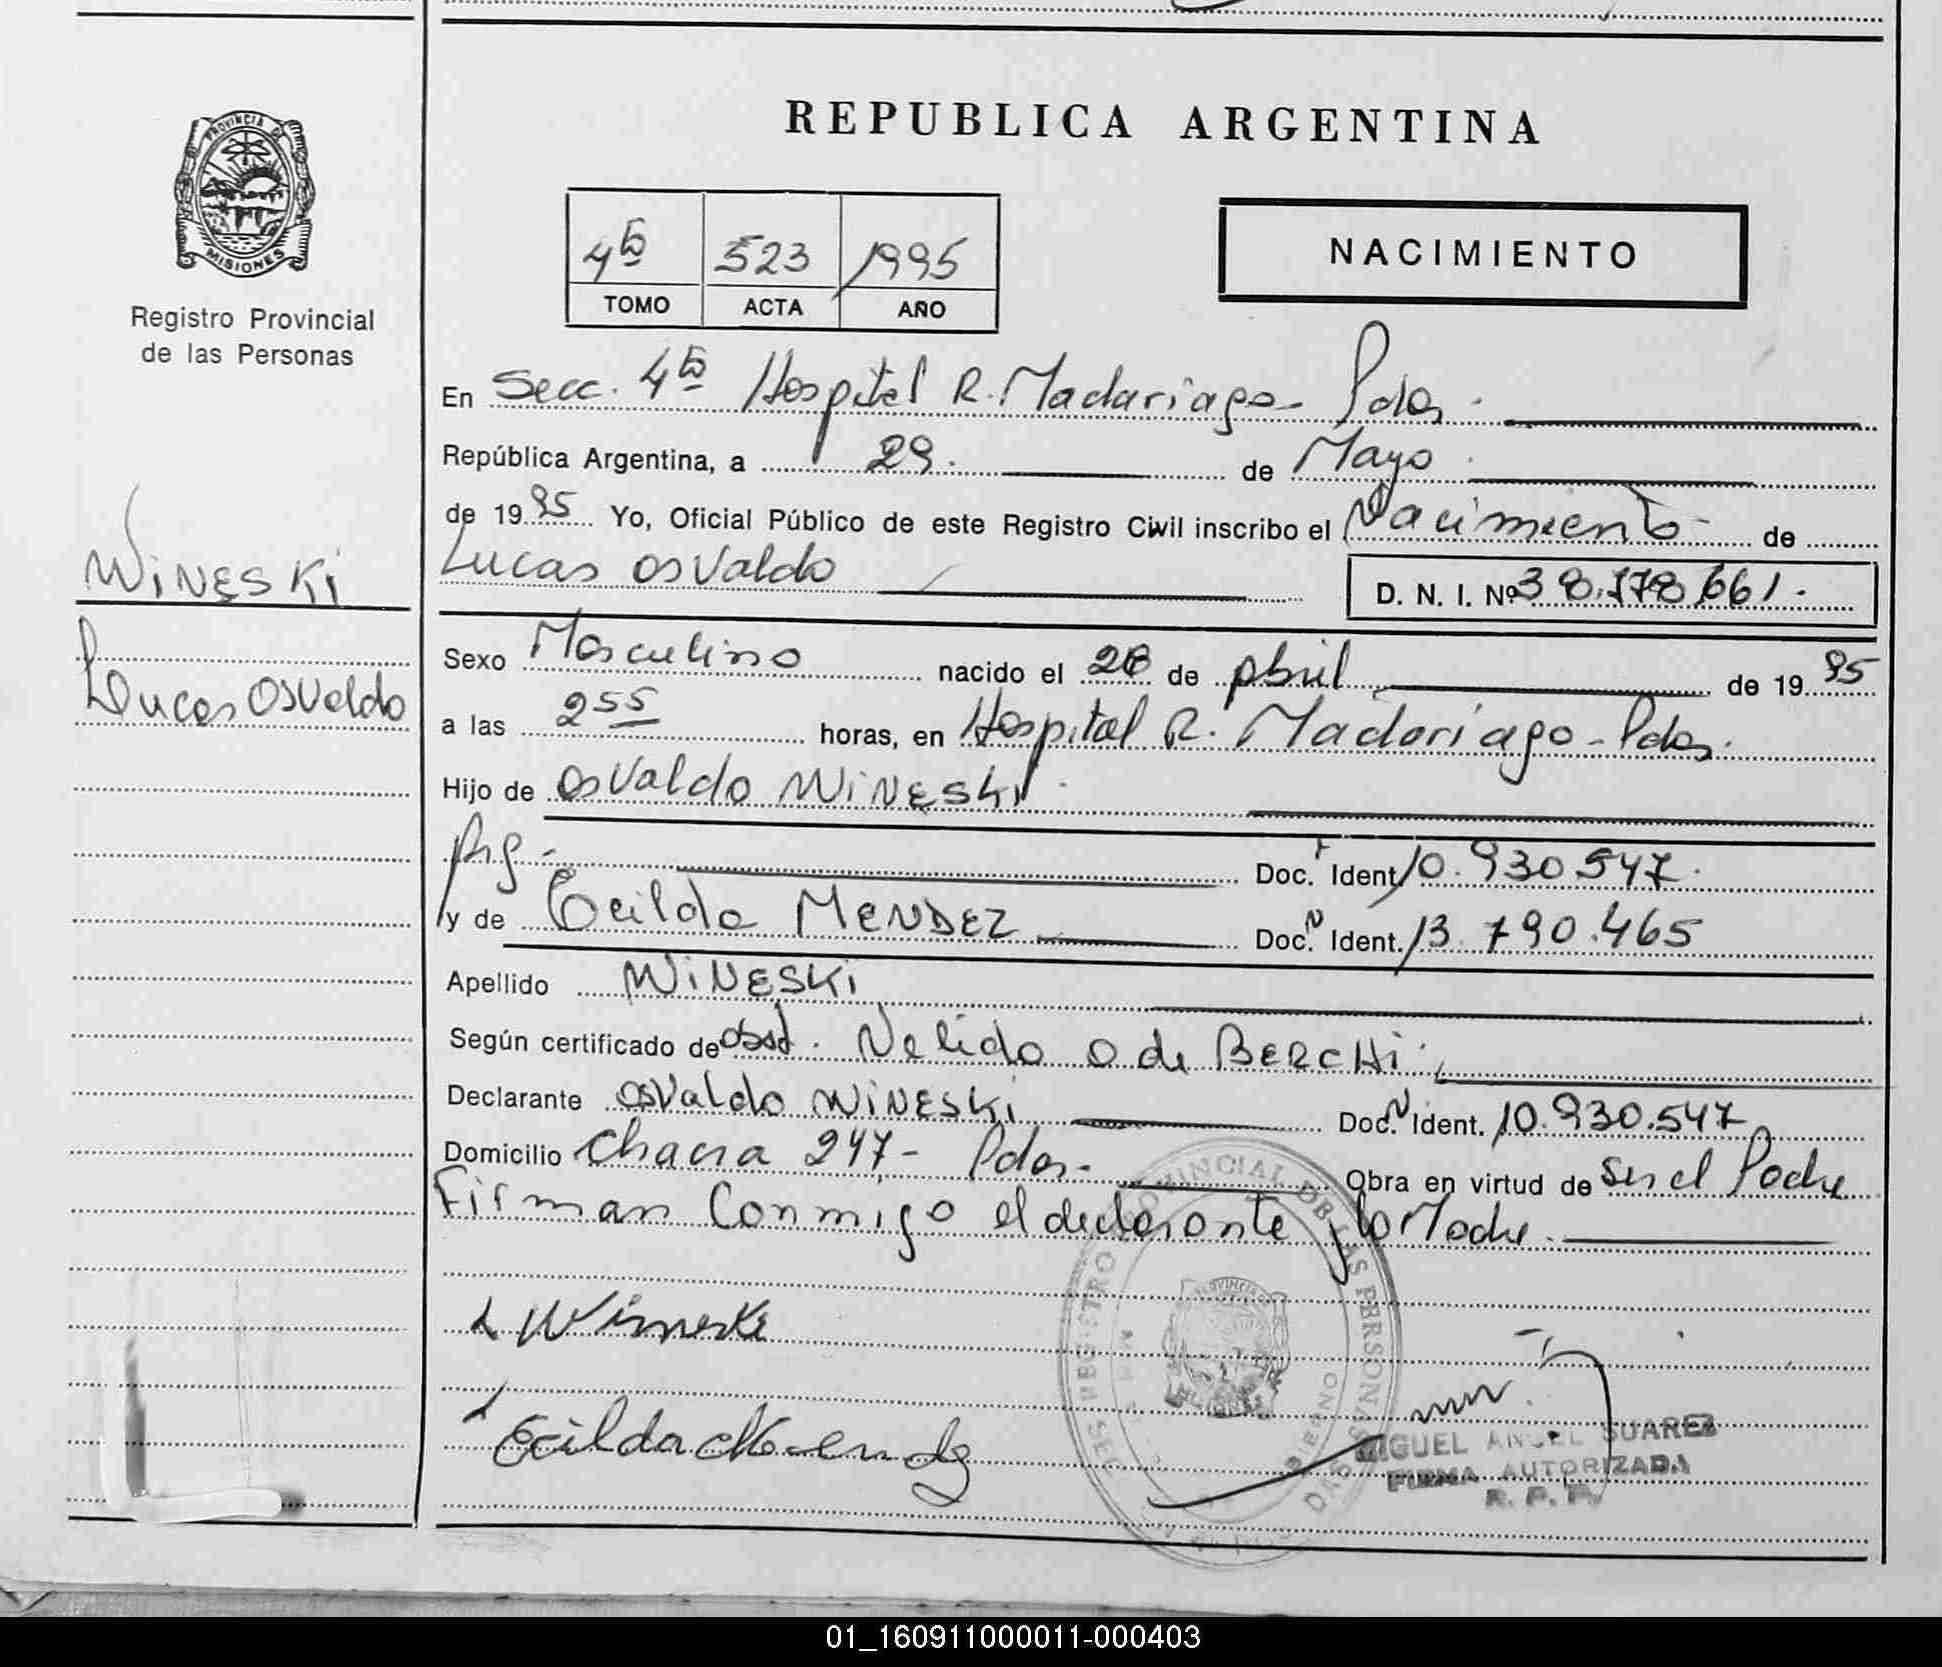 REPUBLICA ARGENTINA
PROVINCIA DE
MISIONES
Registro Provincial
de las Personas
4ta 523 1995
TOMO ACTA AÑO
NACIMIENTO
En Secc. 4ta Hospital R. Madariaga - Pdas.
República Argentina, a 29. de Mayo
de 1995 Yo, Oficial Público de este Registro Civil inscribo el Nacimiento de
Lucas Osvaldo D. N. I. Nº 38.778.661.
WINESKI
Lucas Osvaldo
Sexo Masculino nacido el 28 de Abril de 1995
a las 2 55 horas, en Hospital R. Madariaga - Pdas.
Hijo de Osvaldo WINESKI
Arg - Doc. Ident. 10.930.547.
y de Ecilda MENDEZ Doc. Ident. 13.790.465
Apellido WINESKI
Según certificado de Obst. Nelida O de BERCHI
Declarante Osvaldo WINESKI Doc. Ident. 10.930.547
Domicilio Chacra 247 - Pdas - Obra en virtud de Ser el Padre
Firman Conmigo el declarante y la Madre.
Wineski
Ecilda Mendez
REGISTRO PROVINCIAL DE LAS PERSONAS
MIGUEL ANGEL SUAREZ
FIRMA AUTORIZADA
R. P. P.
01_160911000011-000403